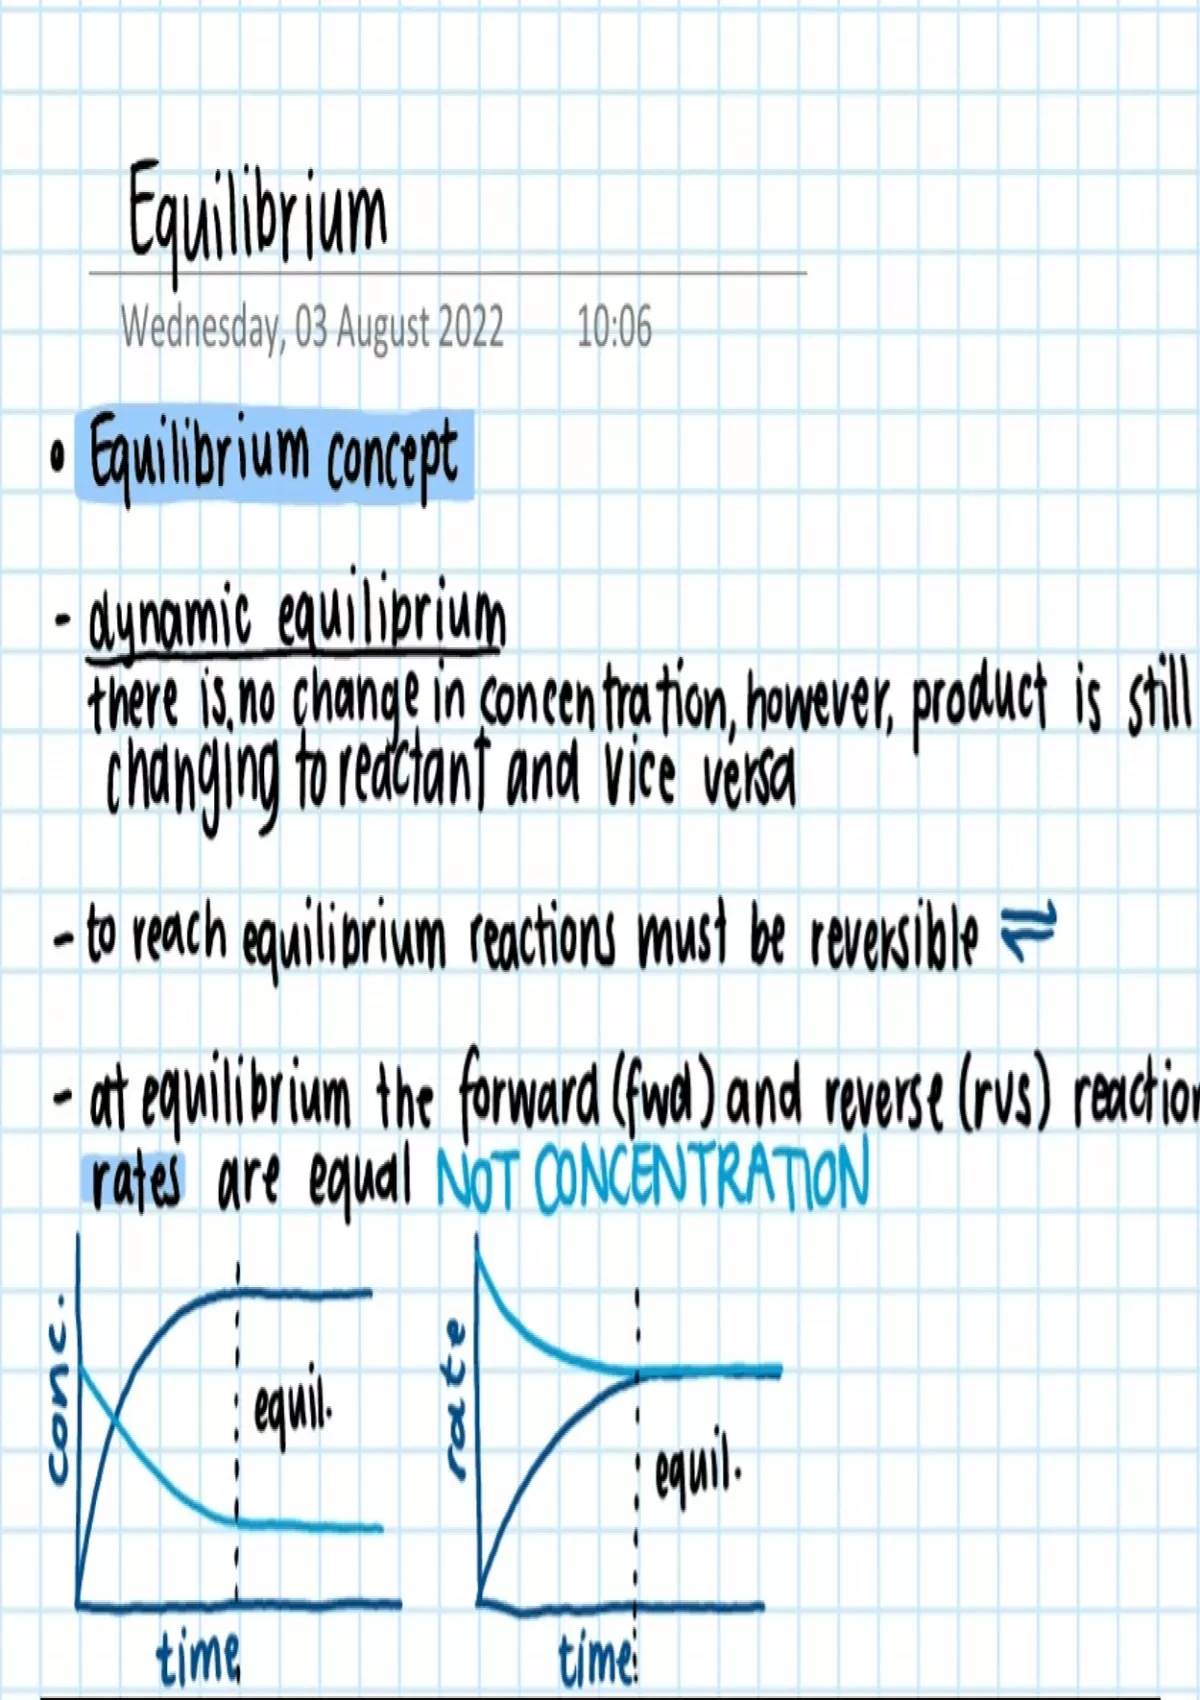 Equilibrium
Wednesday, 03 August 2022 10:06
• Equilibrium concept
- dynamic equilibrium
there is no change in concentration, however, product is still
changing to reactant and vice versa
- to reach equilibrium reactions must be reversible ⇌
- at equilibrium the forward (fwd) and reverse (rvs) reaction
rates are equal NOT CONCENTRATION
conc.
equil.
time
rate
equil.
time